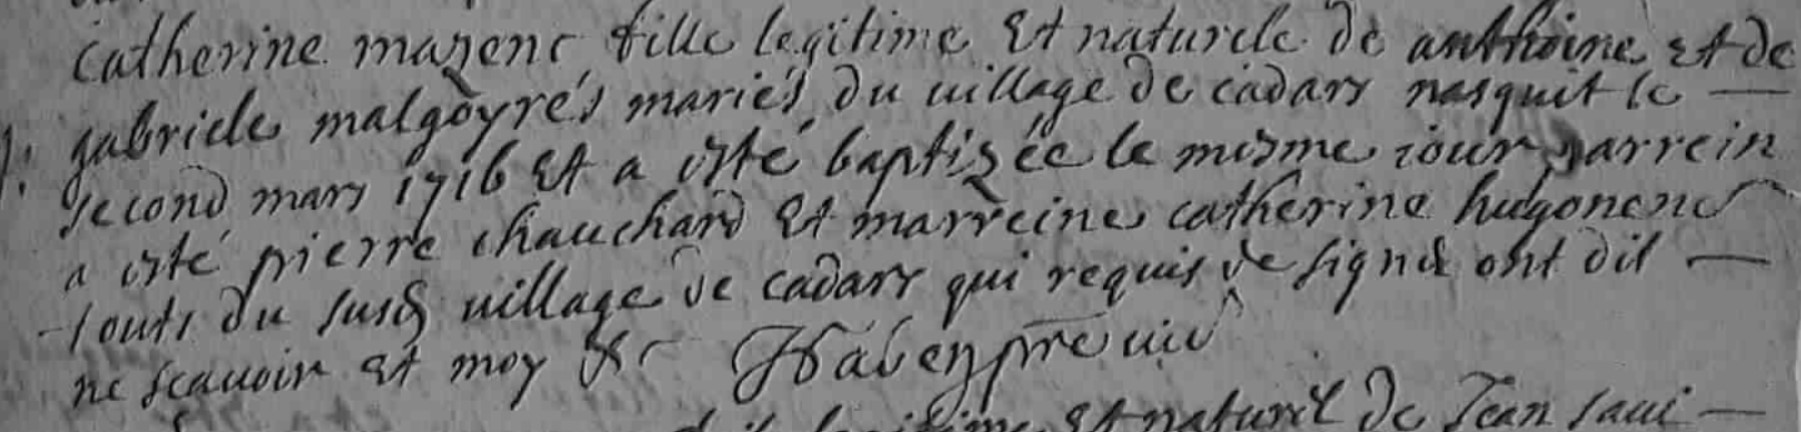 catherine mazenc fille legitime Et naturele de anthoine et de
gabriele malgoyrés mariés du uillage de cadars nasquit le —
second mars 1716 Et a esté baptizée le mesme iour parrein
a esté pierre chauchard Et marreine catherine hugonenc
touts du susd uillage de cadars qui requis de signer ont dit —
ne scauoir et moy &c pre uic
legitime Et naturel de Jean